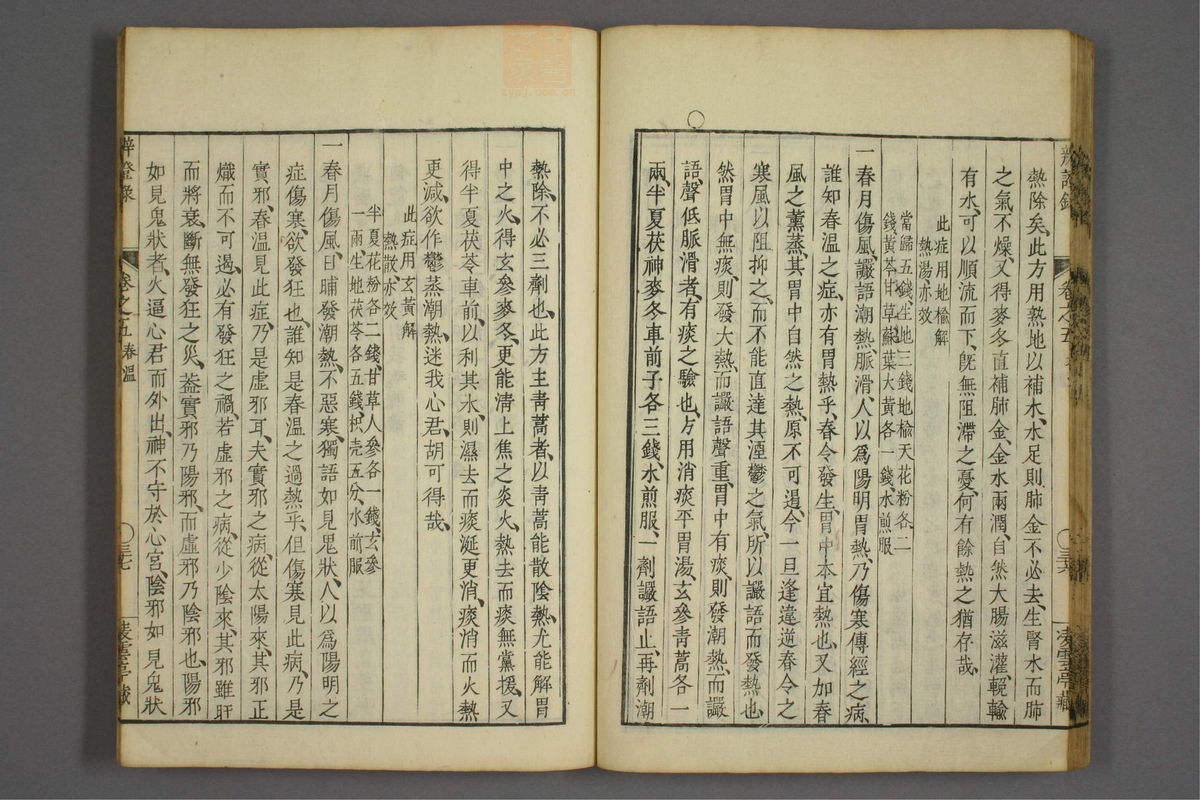 熱除矣、此方用熟地以補水、水足則肺金不必去、生腎水而肺
之氣不燥、又得麥冬直補肺金、金水兩潤、自然大腸滋灌、輗輸
有水、可以順流而下、旣無阻滯之憂、何有餘熱之猶存哉、
此症用地榆解
熱湯亦效
當歸五錢、生地三錢、地榆天花粉各二
錢、黃芩甘草蘇葉大黃各一錢、水煎服
一春月傷風、讝語潮熱、脈滑、人以爲陽明胃熱、乃傷寒傳經之病、
誰知春溫之症、亦有胃熱乎、春令發生、胃中本宜熱也、又加春
風之薰蒸、其胃中自然之熱、原不可遏、今一旦逢違逆春令之
寒風以阻抑之、而不能直達其湮鬱之氣、所以讝語而發熱也、
然胃中無痰、則發大熱、而讝語聲重、胃中有痰、則發潮熱、而讝
語聲低、脈滑者、有痰之驗也、方用消痰平胃湯、玄參青蒿各一
兩、半夏茯神麥冬車前子各三錢、水煎服、一劑讝語止、再劑潮
熱除、不必三劑也、此方主青蒿者、以青蒿能散陰熱、尤能解胃
中之火、得玄參麥冬、更能清上焦之炎火、熱去而痰無黨援、又
得半夏茯苓車前、以利其水、則濕去而痰涎更消、痰消而火熱
更減、欲作鬱蒸潮熱、迷我心君、胡可得哉、
此症用玄黃解
熱散、亦效
半夏花粉各二錢、甘草人參各一錢、玄參
一兩、生地茯苓各五錢、枳壳五分、水煎服
一春月傷風、日晡發潮熱、不惡寒、獨語如見鬼狀、人以爲陽明之
症傷寒、欲發狂也、誰知是春溫之過熱乎、但傷寒見此病、乃是
實邪、春溫見此症、乃是虛邪耳、夫實邪之病、從太陽來、其邪正
熾而不可遏、必有發狂之禍、若虛邪之病、從少陰來、其邪雖旺
而將衰、斷無發狂之災、葢實邪乃陽邪、而虛邪乃陰邪也、陽邪
如見鬼狀者、火逼心君而外出、神不守於心宮、陰邪如見鬼狀
辨證錄
卷之五 春溫
三七
凌雲亭藏